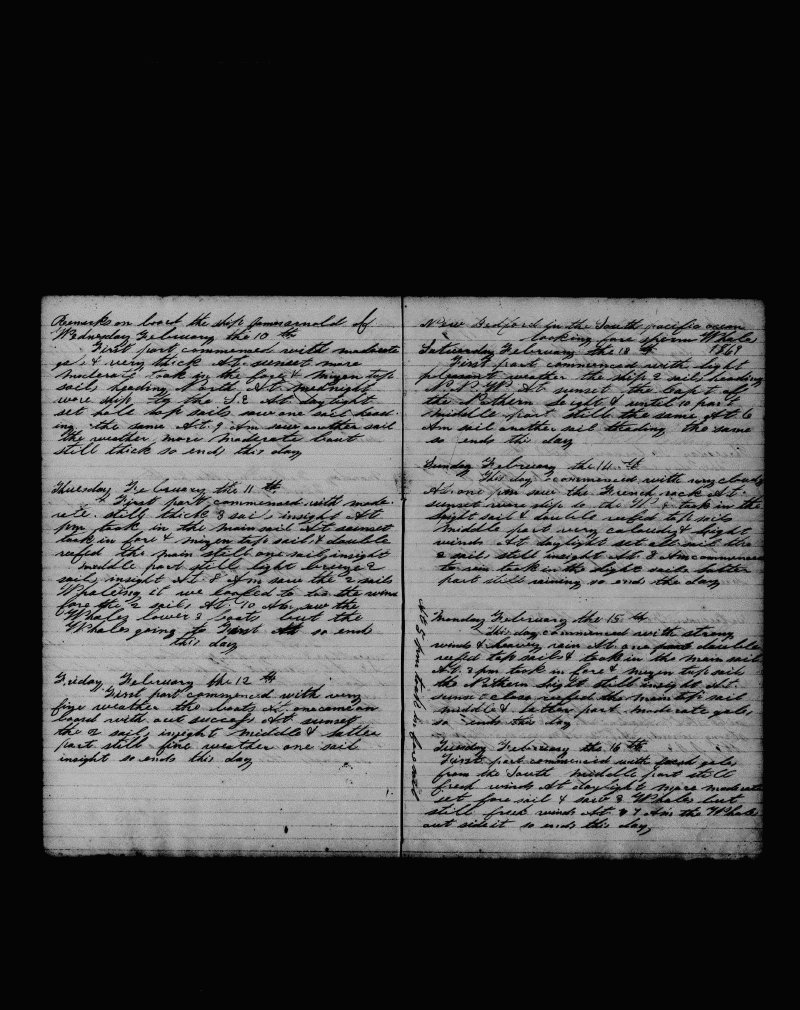 Remarks on board the ship James arnold of
Wednesday February the 10 th
First part commenced with moderate
gale & very thick At sunset more
moderate took in the fore & mizen top
sails heading North At midnight
wore ship to the S.E At daylight
set hole top sails saw one sail head
ing the same At 9 Am saw another sail
the weather more moderate but
still thick so ends this day
Thursday February the 11 th
First part commenced with mode
rate still thick 3 sails insight At
pm took in the main sail At sunset
took in fore & mizen top sail & double
reefed the main still one sail insight
middle part still light breeze 2
sails insight At 8 Am saw the 2 sails
Whaleing it we loafed to the wind
fore the 2 sails At 10 Am saw the
Whales lower 3 boats but the
Whales going to fast At so ends
this day
Friday February the 12 th
First part commenced with very
fine weather the boats At one came on
board with out success At sunset
the 2 sails insight middle & latter
part still fine weather one sail
insight so ends this day
New Bedford in the South pacific ocean
looking fore sperm Whales
Saturday February the 13 th 1869
First part commenced with light
pleasant weather the ship 2 sails heading
At sunset the
the Nothern light & until 10 part
middle part still the same At 6
Am sail another sail steading the same
so ends this day
Sunday February the 14 th
This day commenced with very cloudy
At one pm saw the French rock At
sunset wore ship to the W & took in the
light sail & double reefed top sails
middle part very cloudy & light
winds At daylight set all sail the
2 sails still insight At 8 Am commenced
to rain took in the light sails latter
part still raining so ends the day
Monday February the 15 th
This day commenced with strong
winds & heavy rain At one pm double
reefed top sails & took in the main sail
At 3 pm took in fore & mizen top sail
the Nothern light still insight At
sunset close reefed the main top sail
middle & latter part moderate gales
so ends this day
At 5 pm took in fore sail
Tuesday February the 16 th
First part commenced with fresh gales
from the South middle part still
fresh winds At daylight more moderate
set fore sail & saw 3 Whales but
still fresh winds At 7 Am the Whales
out sight so ends this day